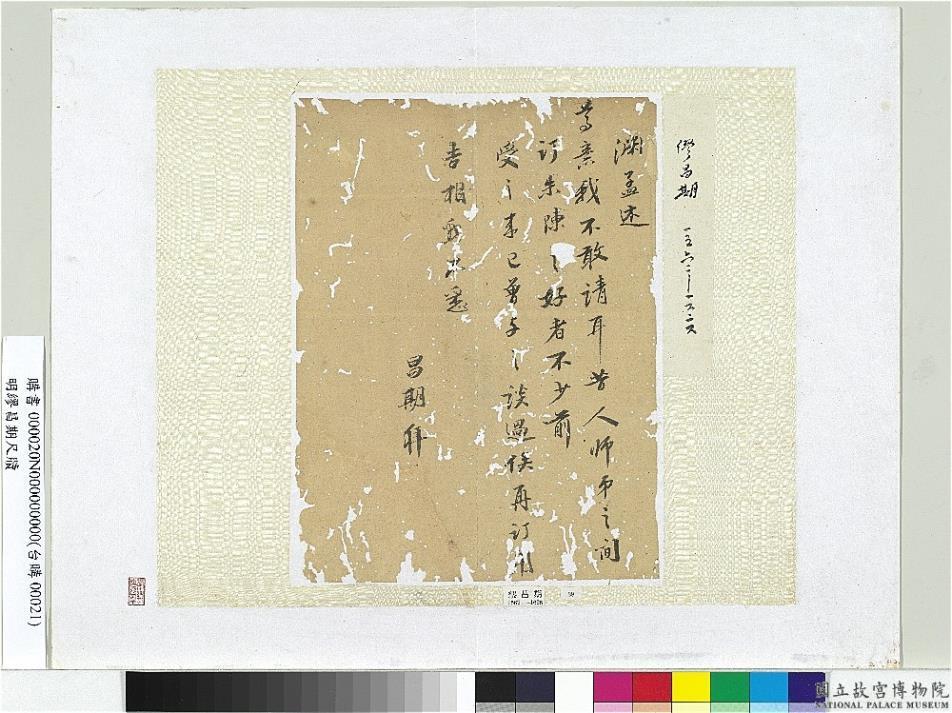 繆昌期 一五六二－一六二六
淵孟述
尊意我不敢請耳昔人師弟之間
訂朱陳之好者不少前
雙之來已曾與之談過俟再訂
吉相
昌期拜
繆昌期
1562 —1626
購書 000020N000000000(台購 00021)
明繆昌期尺牘
國立故宮博物院
NATIONAL PALACE MUSEUM